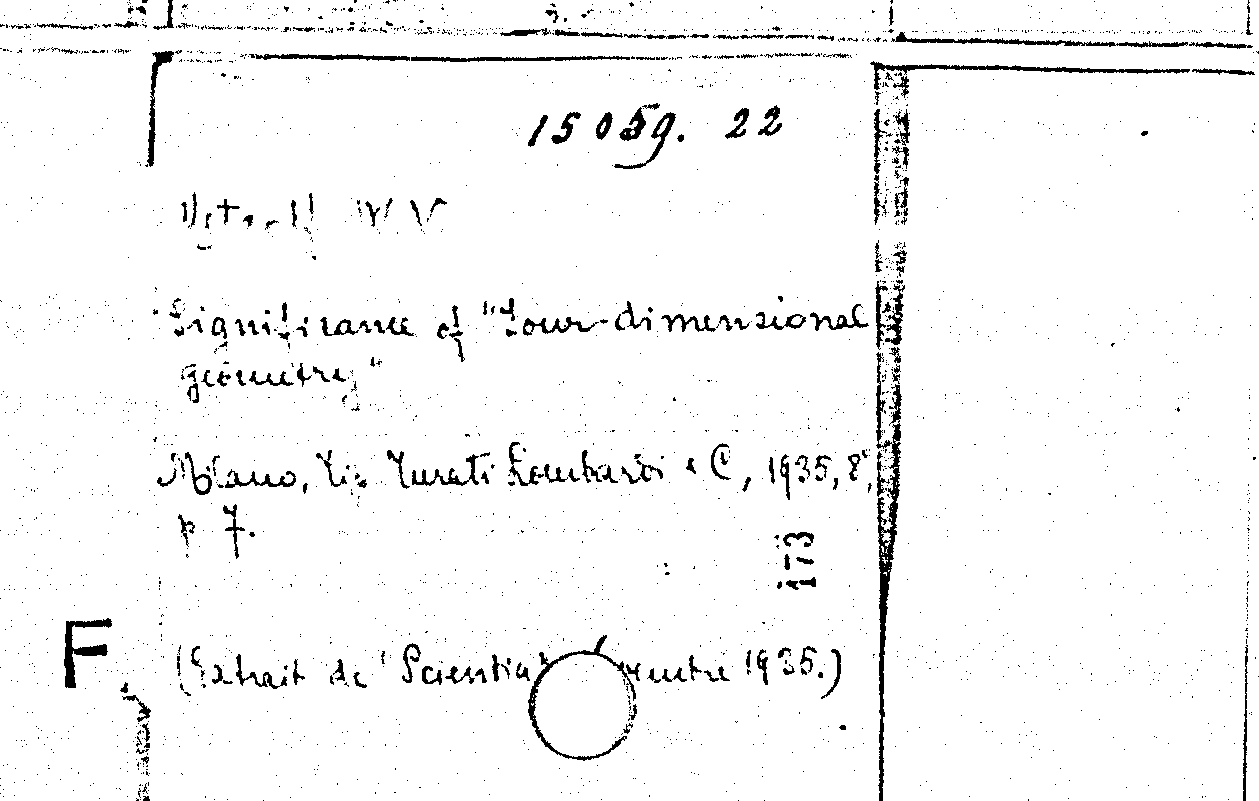 15059. 22
W V
Significance of "Four-dimensional
geometry"
Milano, Tip Turati Lombardi e C, 1935, 8°,
p 7.
173
F
(Extrait de "Scientia" 1935.)